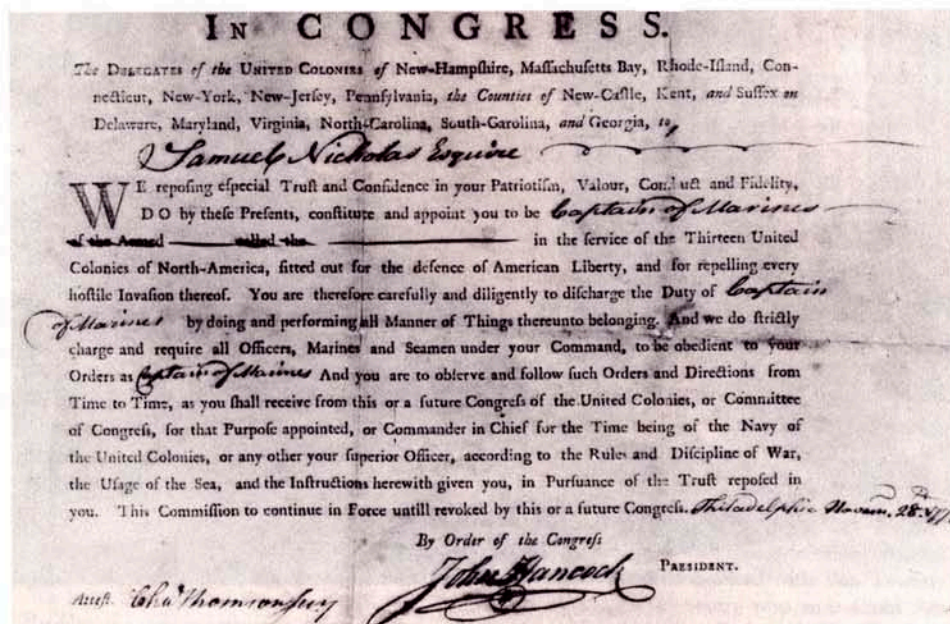 IN CONGRESS.
The DELEGATES of the UNITED COLONIES of New-Hampſhire, Maſſachuſetts Bay, Rhode-Iſland, Con-
necticut, New-York, New-Jerſey, Pennſylvania, the Counties of New-Caſtle, Kent, and Suſſex on
Delaware, Maryland, Virginia, North-Carolina, South-Carolina, and Georgia, to
Samuel Nicholas Esquire
WE repoſing eſpecial Truſt and Confidence in your Patriotiſm, Valour, Conduct and Fidelity,
DO by theſe Preſents, conſtitute and appoint you to be Captain of Marines
of the Armed called the in the ſervice of the Thirteen United
Colonies of North-America, fitted out for the defence of American Liberty, and for repelling every
hoſtile Invaſion thereof. You are therefore carefully and diligently to diſcharge the Duty of Captain
of Marines by doing and performing all Manner of Things thereunto belonging. And we do ſtrictly
charge and require all Officers, Marines and Seamen under your Command, to be obedient to your
Orders as Captain of Marines And you are to obſerve and follow ſuch Orders and Directions from
Time to Time, as you ſhall receive from this or a future Congreſs of the United Colonies, or Committee
of Congreſs, for that Purpoſe appointed, or Commander in Chief for the Time being of the Navy of
the United Colonies, or any other your ſuperior Officer, according to the Rules and Diſcipline of War,
the Uſage of the Sea, and the Inſtructions herewith given you, in Purſuance of the Truſt repoſed in
you. This Commiſſion to continue in Force untill revoked by this or a future Congreſs. Philadelphia Novem. 28th
By Order of the Congreſs
John Hancock PRESIDENT.
Atteſt. Cha Thomson Secy